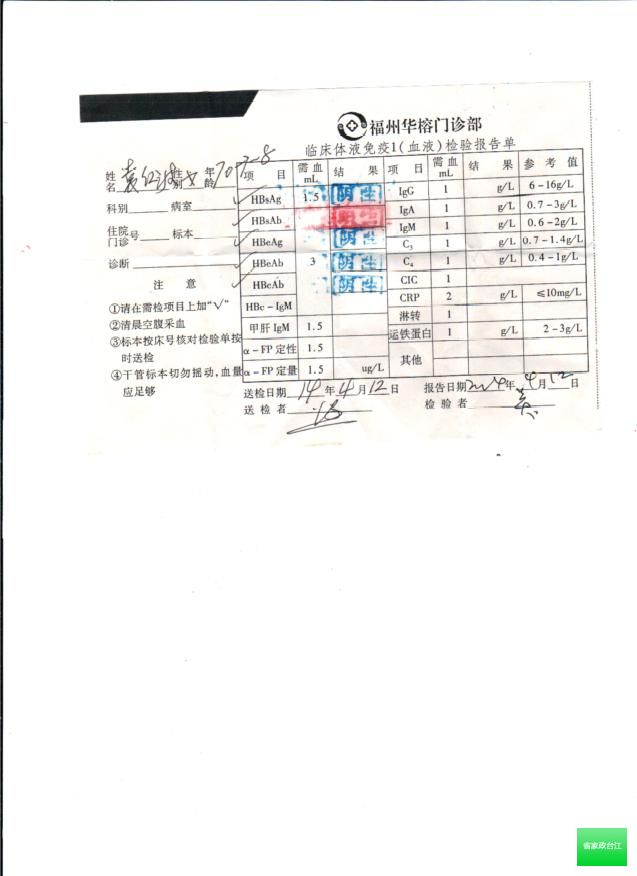 福州华榕门诊部
临床体液免疫1(血液)检验报告单
姓名 性别 女 年龄 70-7-8
科别 病室
住院门诊号 标本
诊断
注 意
①请在需检项目上加“√”
②清晨空腹采血
③标本按床号核对检验单按时送检
④干管标本切勿摇动,血量应足够
项 目 需血mL 结 果 项 目 需血mL 结 果 参 考 值
HBsAg 1.5 阴性 IgG 1 g/L 6-16g/L
HBsAb 阳性 IgA 1 g/L 0.7-3g/L
HBeAg 阴性 IgM 1 g/L 0.6-2g/L
HBeAb 3 阴性 C₃ 1 g/L 0.7-1.4g/L
HBcAb 阴性 C₄ 1 g/L 0.4-1g/L
HBc-IgM CIC 1
甲肝IgM 1.5 CRP 2 g/L ≤10mg/L
α-FP定性 1.5 淋转 1
α-FP定量 1.5 ug/L 运铁蛋白 1 g/L 2-3g/L
其他
送检日期 14年4月12日 报告日期 2014年4月12日
送检者 检验者
省家政台江